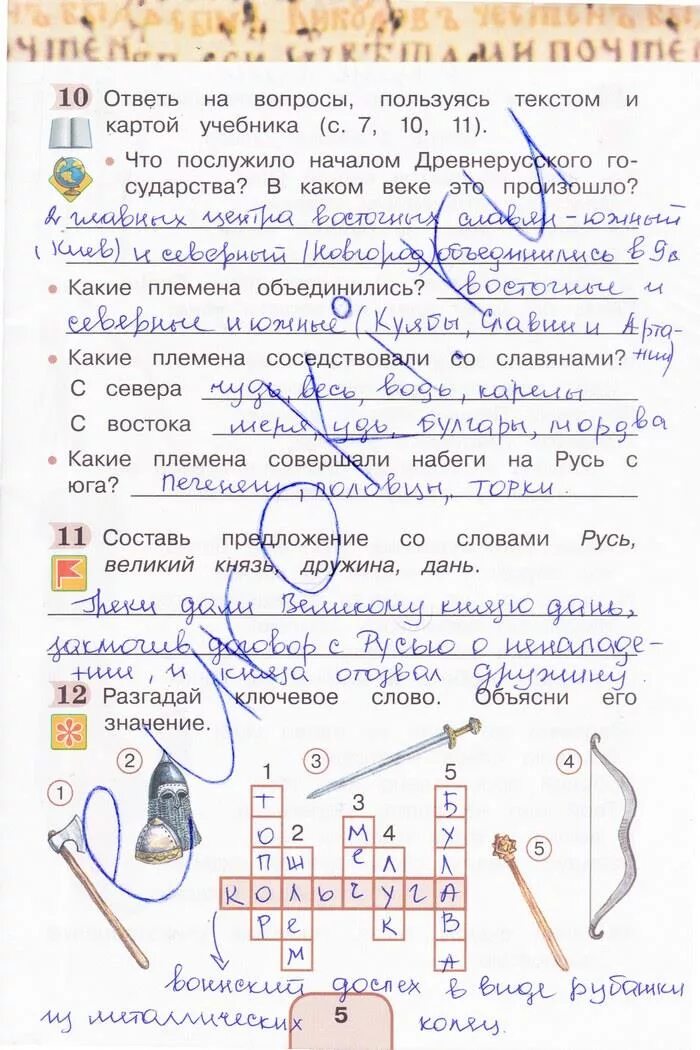 10 Ответь на вопросы, пользуясь текстом и
картой учебника (с. 7, 10, 11).
• Что послужило началом Древнерусского го-
сударства? В каком веке это произошло?
2 главных центра восточных славян - южный
(Киев) и северный (Новгород) объединились в 9в
• Какие племена объединились? восточные и
северные и южные (Куябы, Славии и Арта-
нии)
• Какие племена соседствовали со славянами?
С севера чудь, весь, водь, карелы
С востока меря, удь, Булгары, мордва
• Какие племена совершали набеги на Русь с
юга? Печенеги, половцы, торки.
11 Составь предложение со словами Русь,
великий князь, дружина, дань.
Греки дали Великому князю дань,
заключив договор с Русью о ненападе-
нии, и князь отозвал дружину.
12 Разгадай ключевое слово. Объясни его
значение.
1 2 3 4 5
1 2 3 4 5
ТОПОР
ШЛЕМ
МЕЧ
ЛУК
БУЛАВА
КОЛЬЧУГА
воинский доспех в виде рубашки
из металлических колец.
5